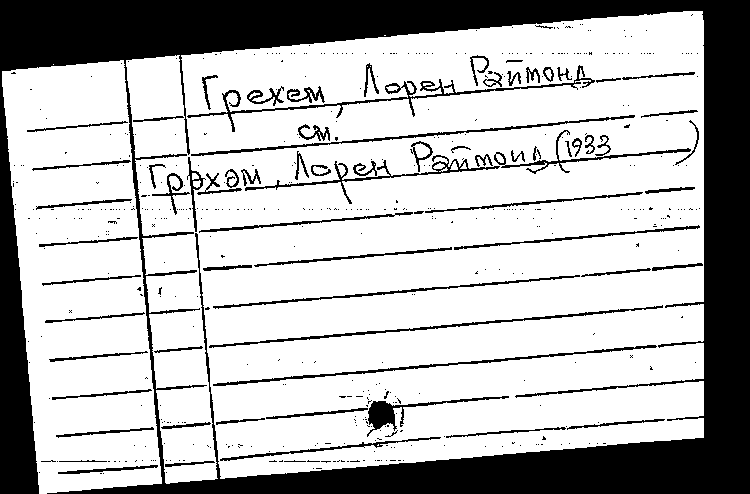 Грехем, Лорен Рэймонд
см.
Грэхэм, Лорен Рэймонд (1933 )